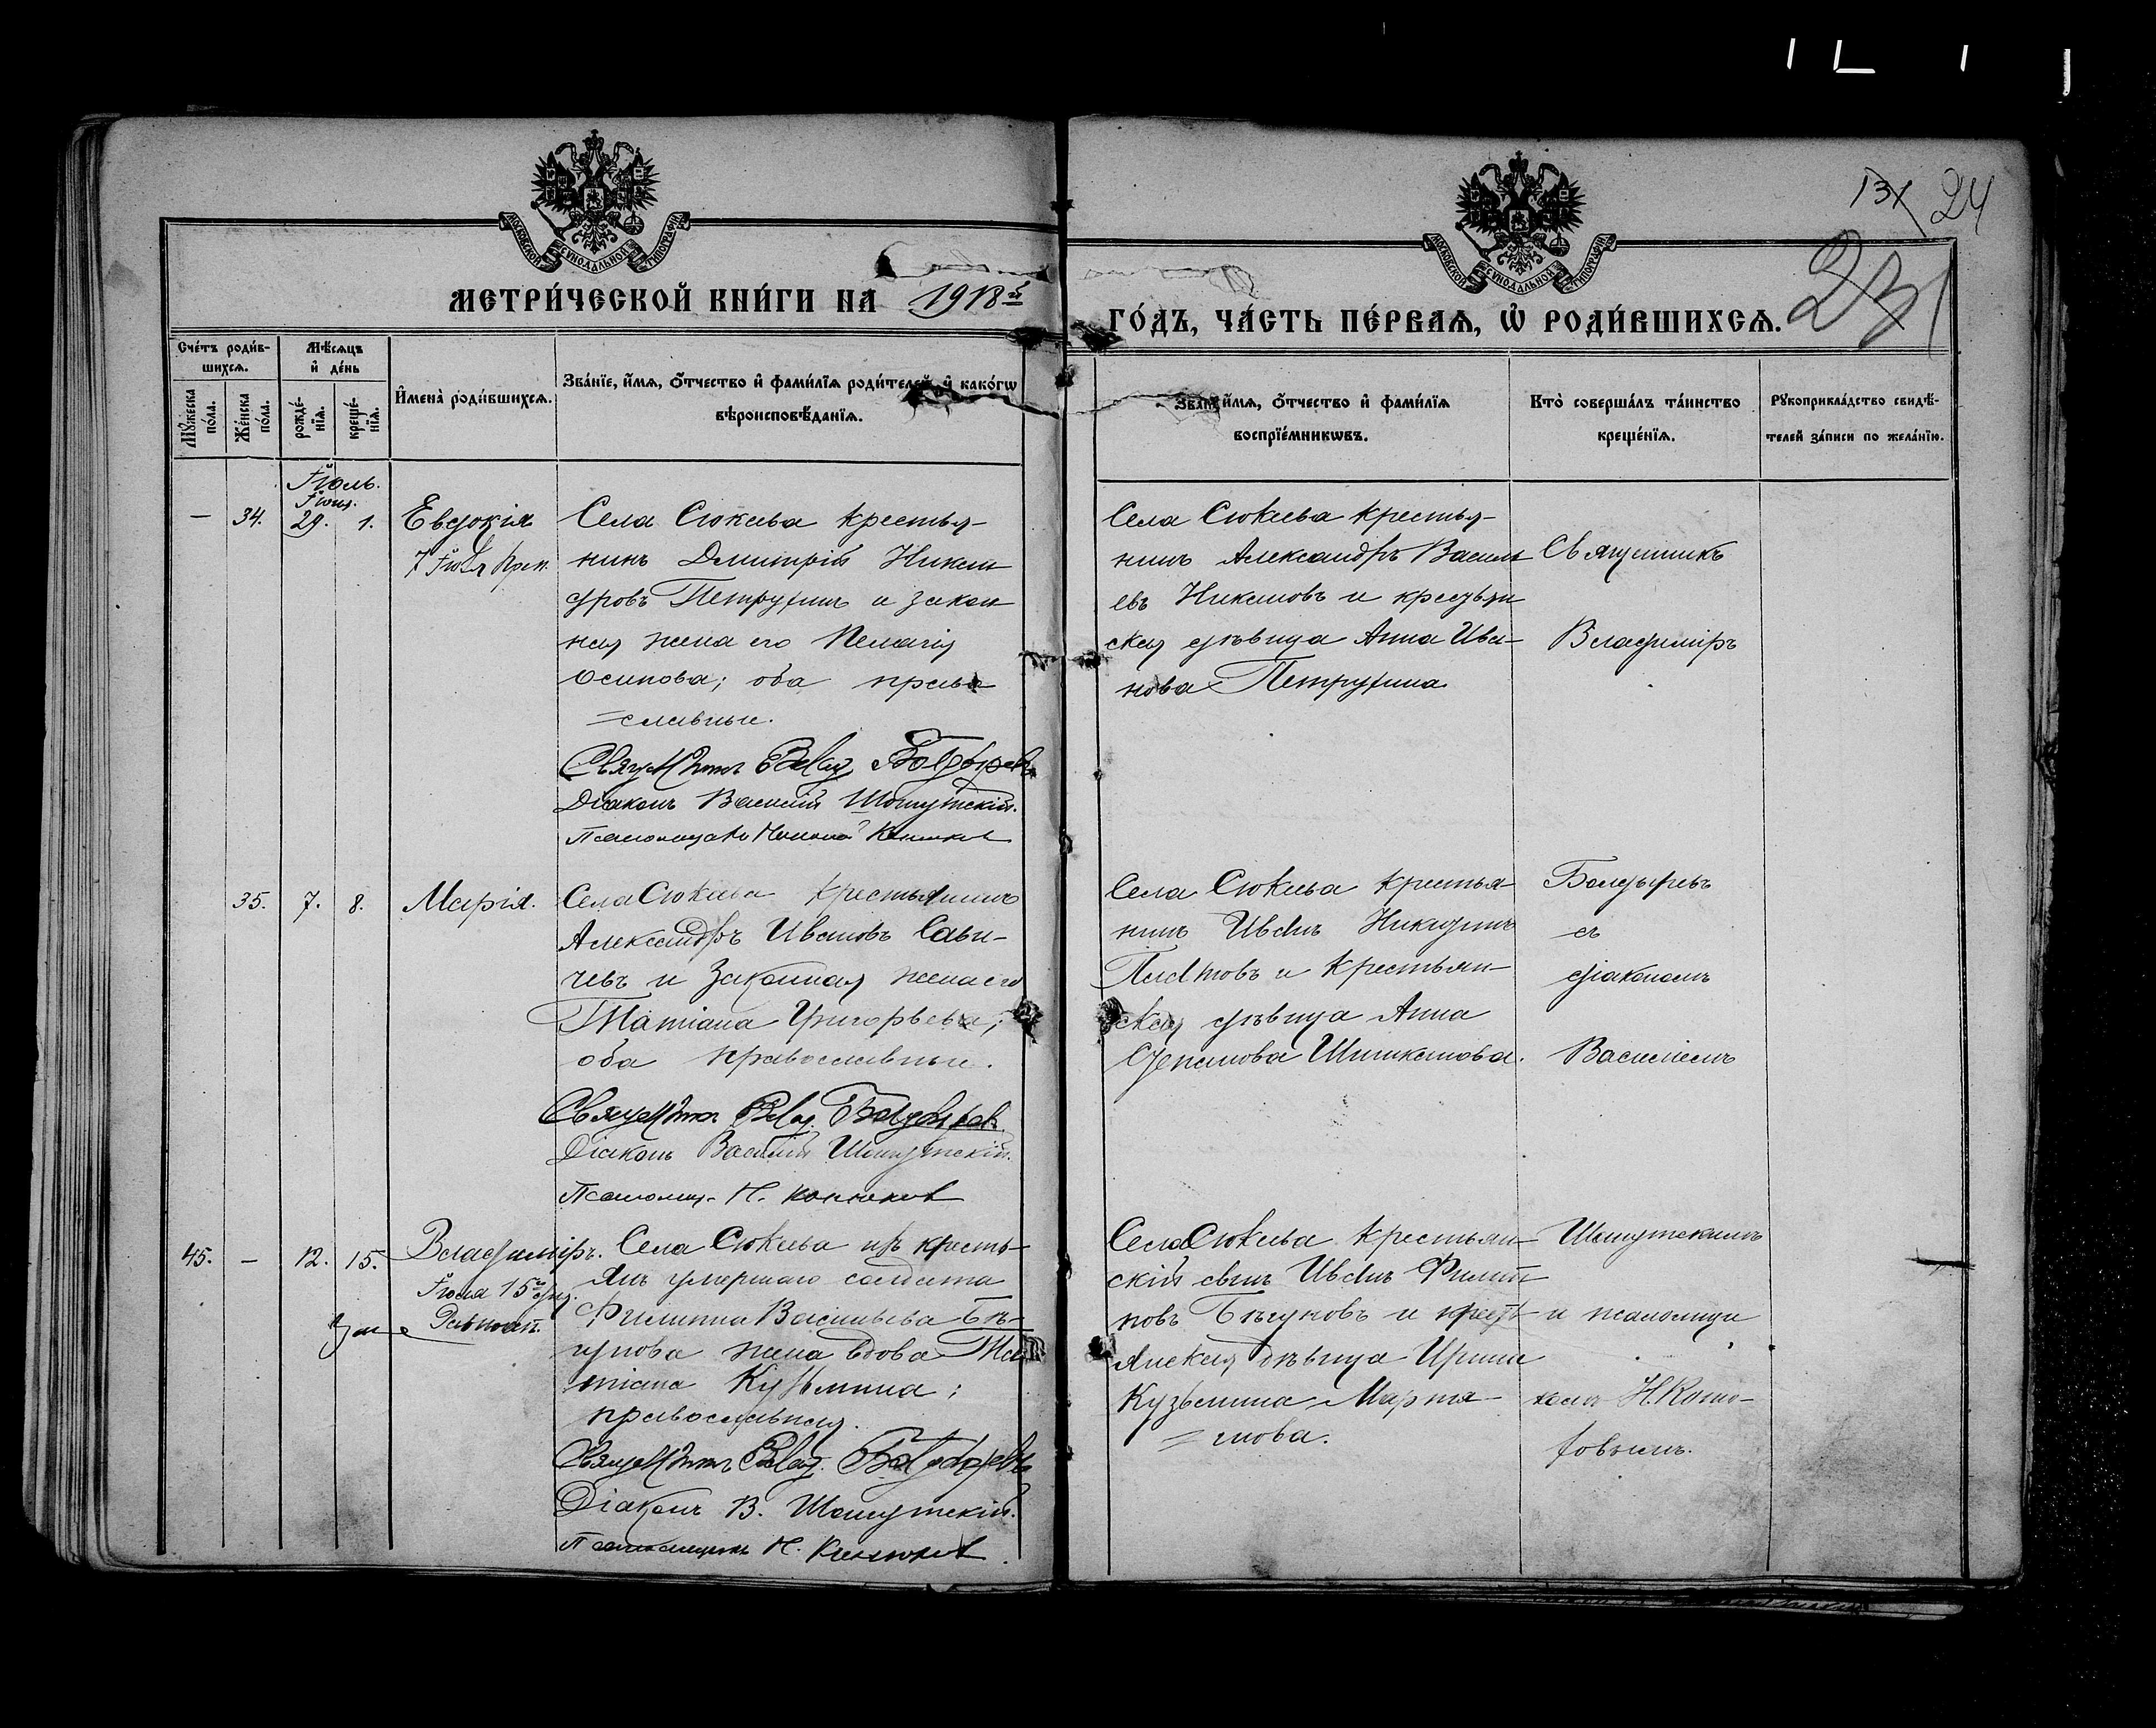 131 24
231
МОСКОВСКОЙ СѴНОДАЛЬНОЙ ТИПОГРАФІИ
МОСКОВСКОЙ СѴНОДАЛЬНОЙ ТИПОГРАФІИ
МЕТРИ́ЧЕСКОЙ КНИ́ГИ НА 1918й
ГО́ДЪ, ЧА́СТЬ ПЕ́РВАѦ, Ѡ҆ РОДИ́ВШИХСѦ.
Сче́тъ роди́в-
шихсѧ.
Мꙋ́жеска по́ла.
Же́нска по́ла.
Мѣ́сѧцъ
и҆ де́нь
рожде́-
нїѧ.
креще́-
нїѧ.
И҆мена̀ роди́вшихсѧ.
Зва́нїе, и҆́мѧ, ѻ҆́тчество и҆ фамѝлїѧ роди́телей, и҆ како́гѡ
вѣроисповѣ́данїѧ.
Зва́нїе, и҆́мѧ, ѻ҆́тчество и҆ фамѝлїѧ
воспрїе́мникѡвъ.
Кто̀ соверша́лъ та́инство
креще́нїѧ.
Рꙋкоприкла́дство свидѣ́-
телей за́писи по жела́нїю.
Іюль.
Іюня.
— 34. 29. 1. Евдокія
7 Іюля
Села Сюкеева крестья-
нинъ Дмитрій Никан
дровъ Петрухинъ и закон
ная жена его Пелагія
Осипова; оба право
=славные.
Священникъ Влад. Болдыревъ
Діаконъ Василій Шошутскій.
Псаломщикъ
Села Сюкеева крестья-
нинъ Александръ Василь
евъ Никановъ и крестьян
ская дѣвица Анна Ива-
нова Петрухина
Священникъ
Владиміръ
35. 7. 8. Марія.
Села Сюкеева крестьянинъ
Александръ Ивановъ Сави-
чевъ и законная жена его
Татіана Григорьева;
оба православные.
Священникъ Влад. Болдырев.
Діаконъ Василій Шошутскій.
Псаломщ. Н. Конюков
Села Сюкеева крестья-
нинъ Иванъ Никитинъ
Платовъ и крестьян-
ская дѣвица Анна
Степанова Шишкапова.
Болдыревъ
съ
діакономъ
Василіемъ
45. — 12. 15. Владиміръ.
Іюля 15го дня.
Равноап.
Села Сюкеева изъ кресть-
янъ умершаго солдата
Филиппа Васильева Бѣ-
гунова жена вдова Та
тіана Кузьмина;
православная.
Священникъ Влад. Болдыревъ
Діаконъ В. Шошутскій.
Псаломщикъ Н. Конюков
Села Сюкеева крестьян-
скій сынъ Иванъ Филип
повъ Бѣгуновъ и крест-
янская дѣвица Ирина
Кузьмина Мартя-
=нова.
Шошутскимъ
и псаломщи
комъ Н. Коню-
ковымъ.